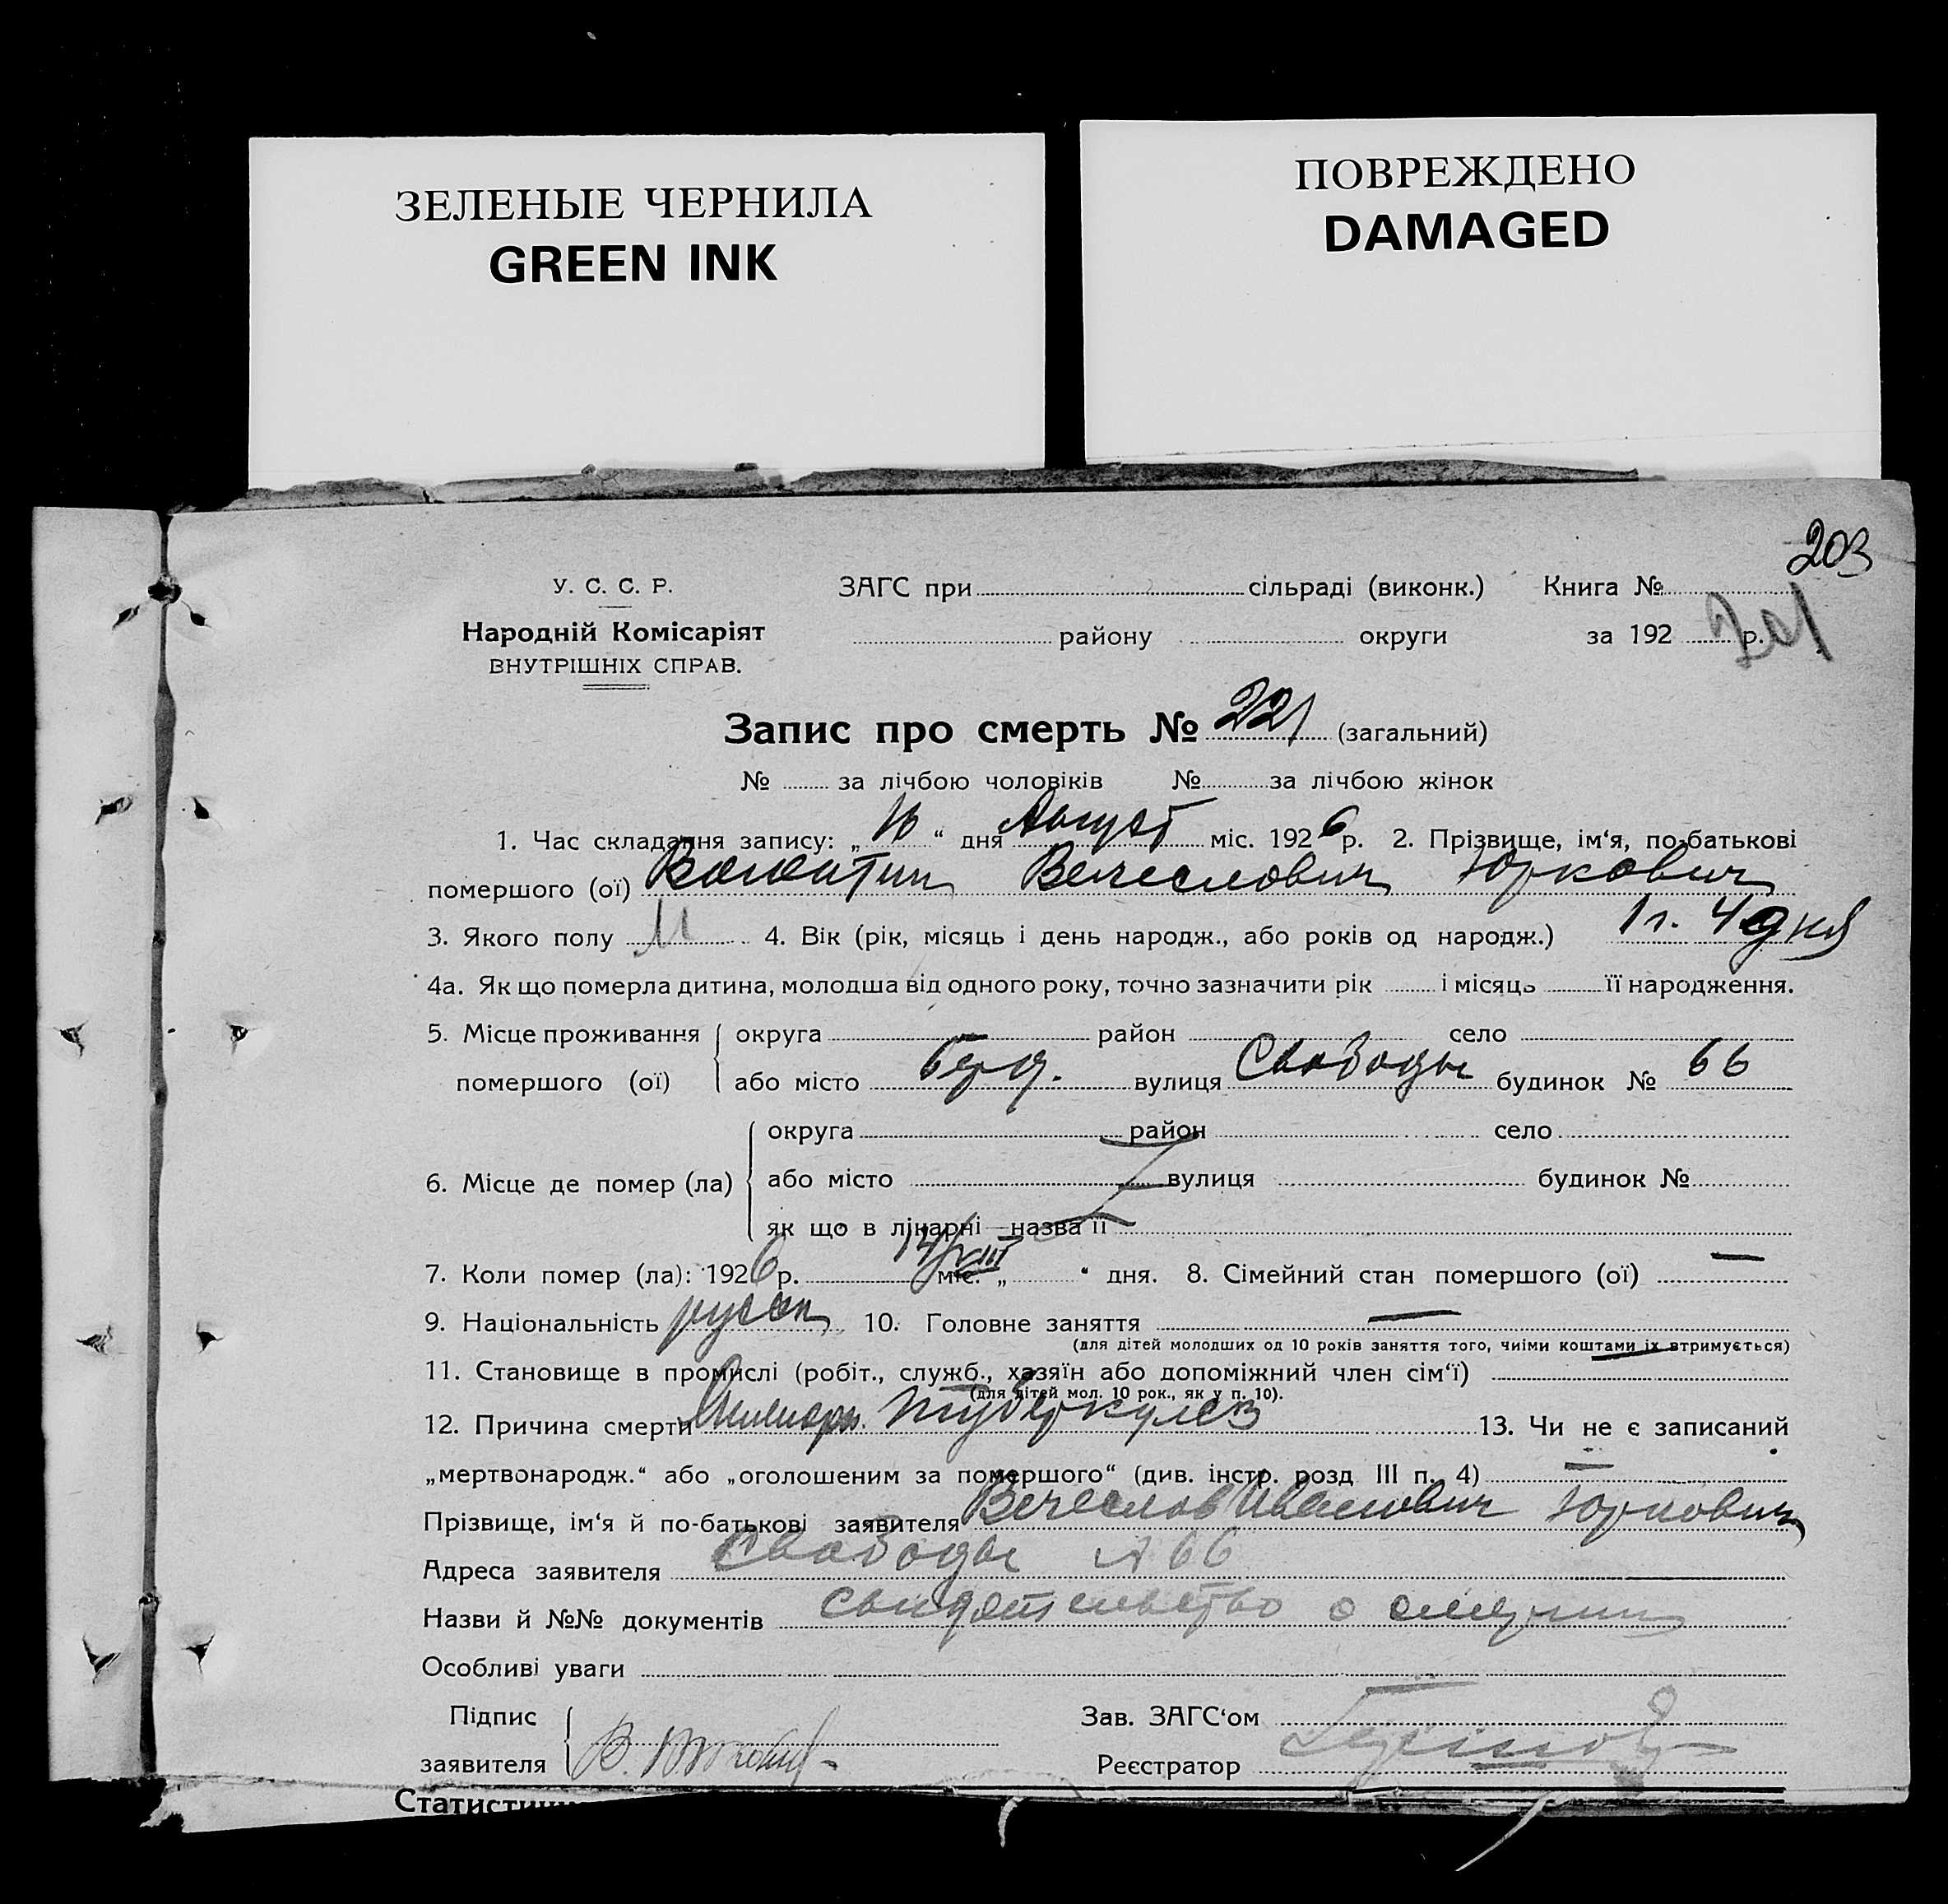 ЗЕЛЕНЫЕ ЧЕРНИЛА
GREEN INK
ПОВРЕЖДЕНО
DAMAGED
203
201
У. С. С. Р.
Народній Комісаріят
ВНУТРІШНІХ СПРАВ.
ЗАГС при сільраді (виконк.) Книга №
району округи за 192 р.
Запис про смерть № 221 (загальний)
№ за лічбою чоловіків № за лічбою жінок
1. Час складання запису: „16“ дня Август міс. 1926 р. 2. Прізвище, ім‘я, по-батькові
помершого (ої) Валентин Вечеслович Юркович
3. Якого полу М 4. Вік (рік, місяць і день народж., або років од народж.) 1 г. 4 дня
4а. Як що померла дитина, молодша від одного року, точно зазначити рік і місяць її народження.
5. Місце проживання округа район село
помершого (ої) або місто Берд. вулиця Свободы будинок № 66
округа район село
6. Місце де помер (ла) або місто вулиця будинок №
як що в лікарні — назва її
7. Коли помер (ла): 1926 р. 14/VIII міс. „ “ дня. 8. Сімейний стан помершого (ої) —
9. Національність русск 10. Головне заняття —
(для дітей молодших од 10 років заняття того, чиїми коштами їх втримується)
11. Становище в промислі (робіт., служб., хазяїн або допоміжний член сім‘ї) —
(для дітей мол. 10 рок., як у п. 10).
12. Причина смерти Милиарн. туберкулез 13. Чи не є записаний
„мертвонародж.“ або „оголошеним за помершого“ (див. інстр. розд III п. 4) —
Прізвище, ім‘я й по-батькові заявителя Вечеслав Иванович Юркович
Адреса заявителя Свободы № 66
Назви й №№ документів свидетельство о смерти
Особливі уваги
Підпис
заявителя В. Юркович
Зав. ЗАГС‘ом
Реєстратор